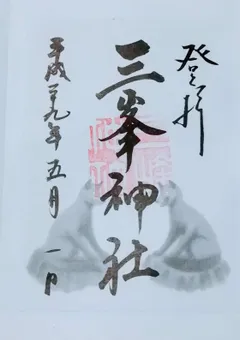 登拝
三峯神社
平成二九年五月一日